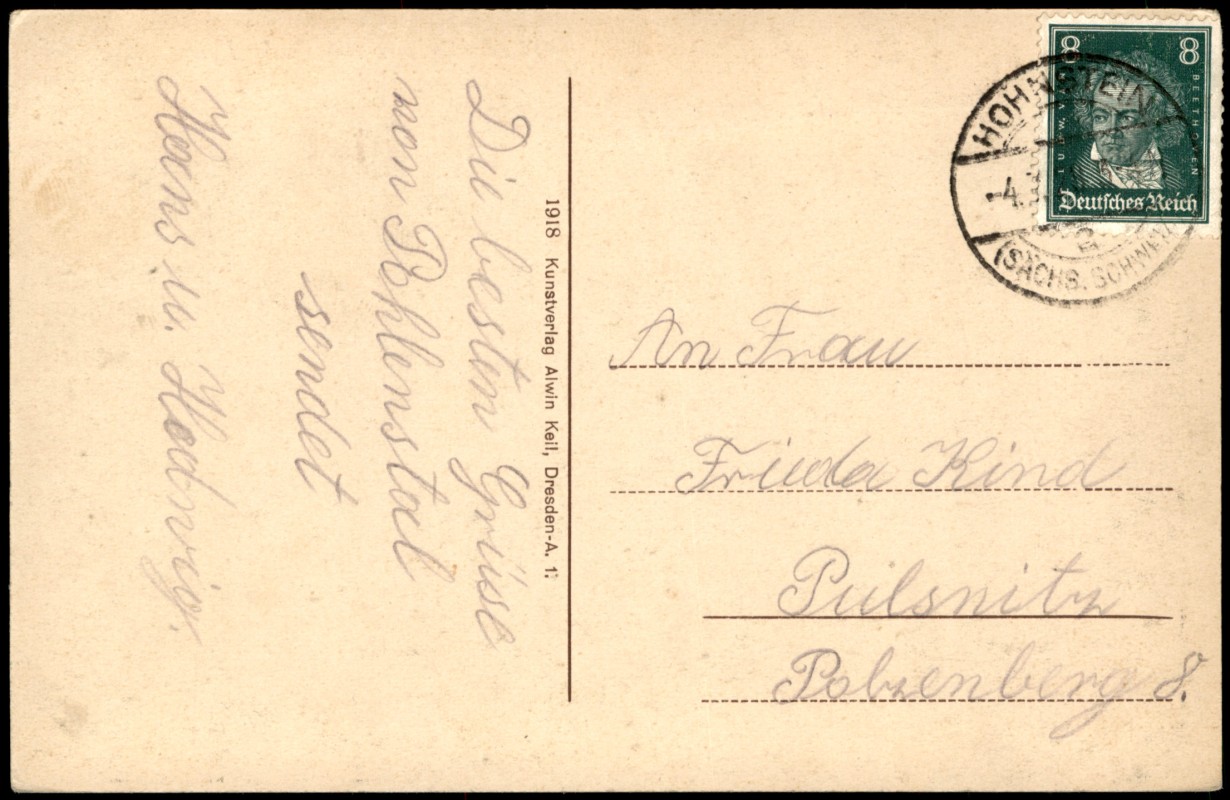 Die besten Grüse
von Pohlenstal
sendet
Hans u. Hadwig.
1918 Kunstverlag Alwin Keil, Dresden-A. 1.
8 8
LUDW. V. BEETHOVEN
Deutsches Reich
HOHNSTEIN
-4.
a
(SÄCHS. SCHWEIZ
An Frau
Frieda Kind
Pulsnitz
Polzenberg 8.